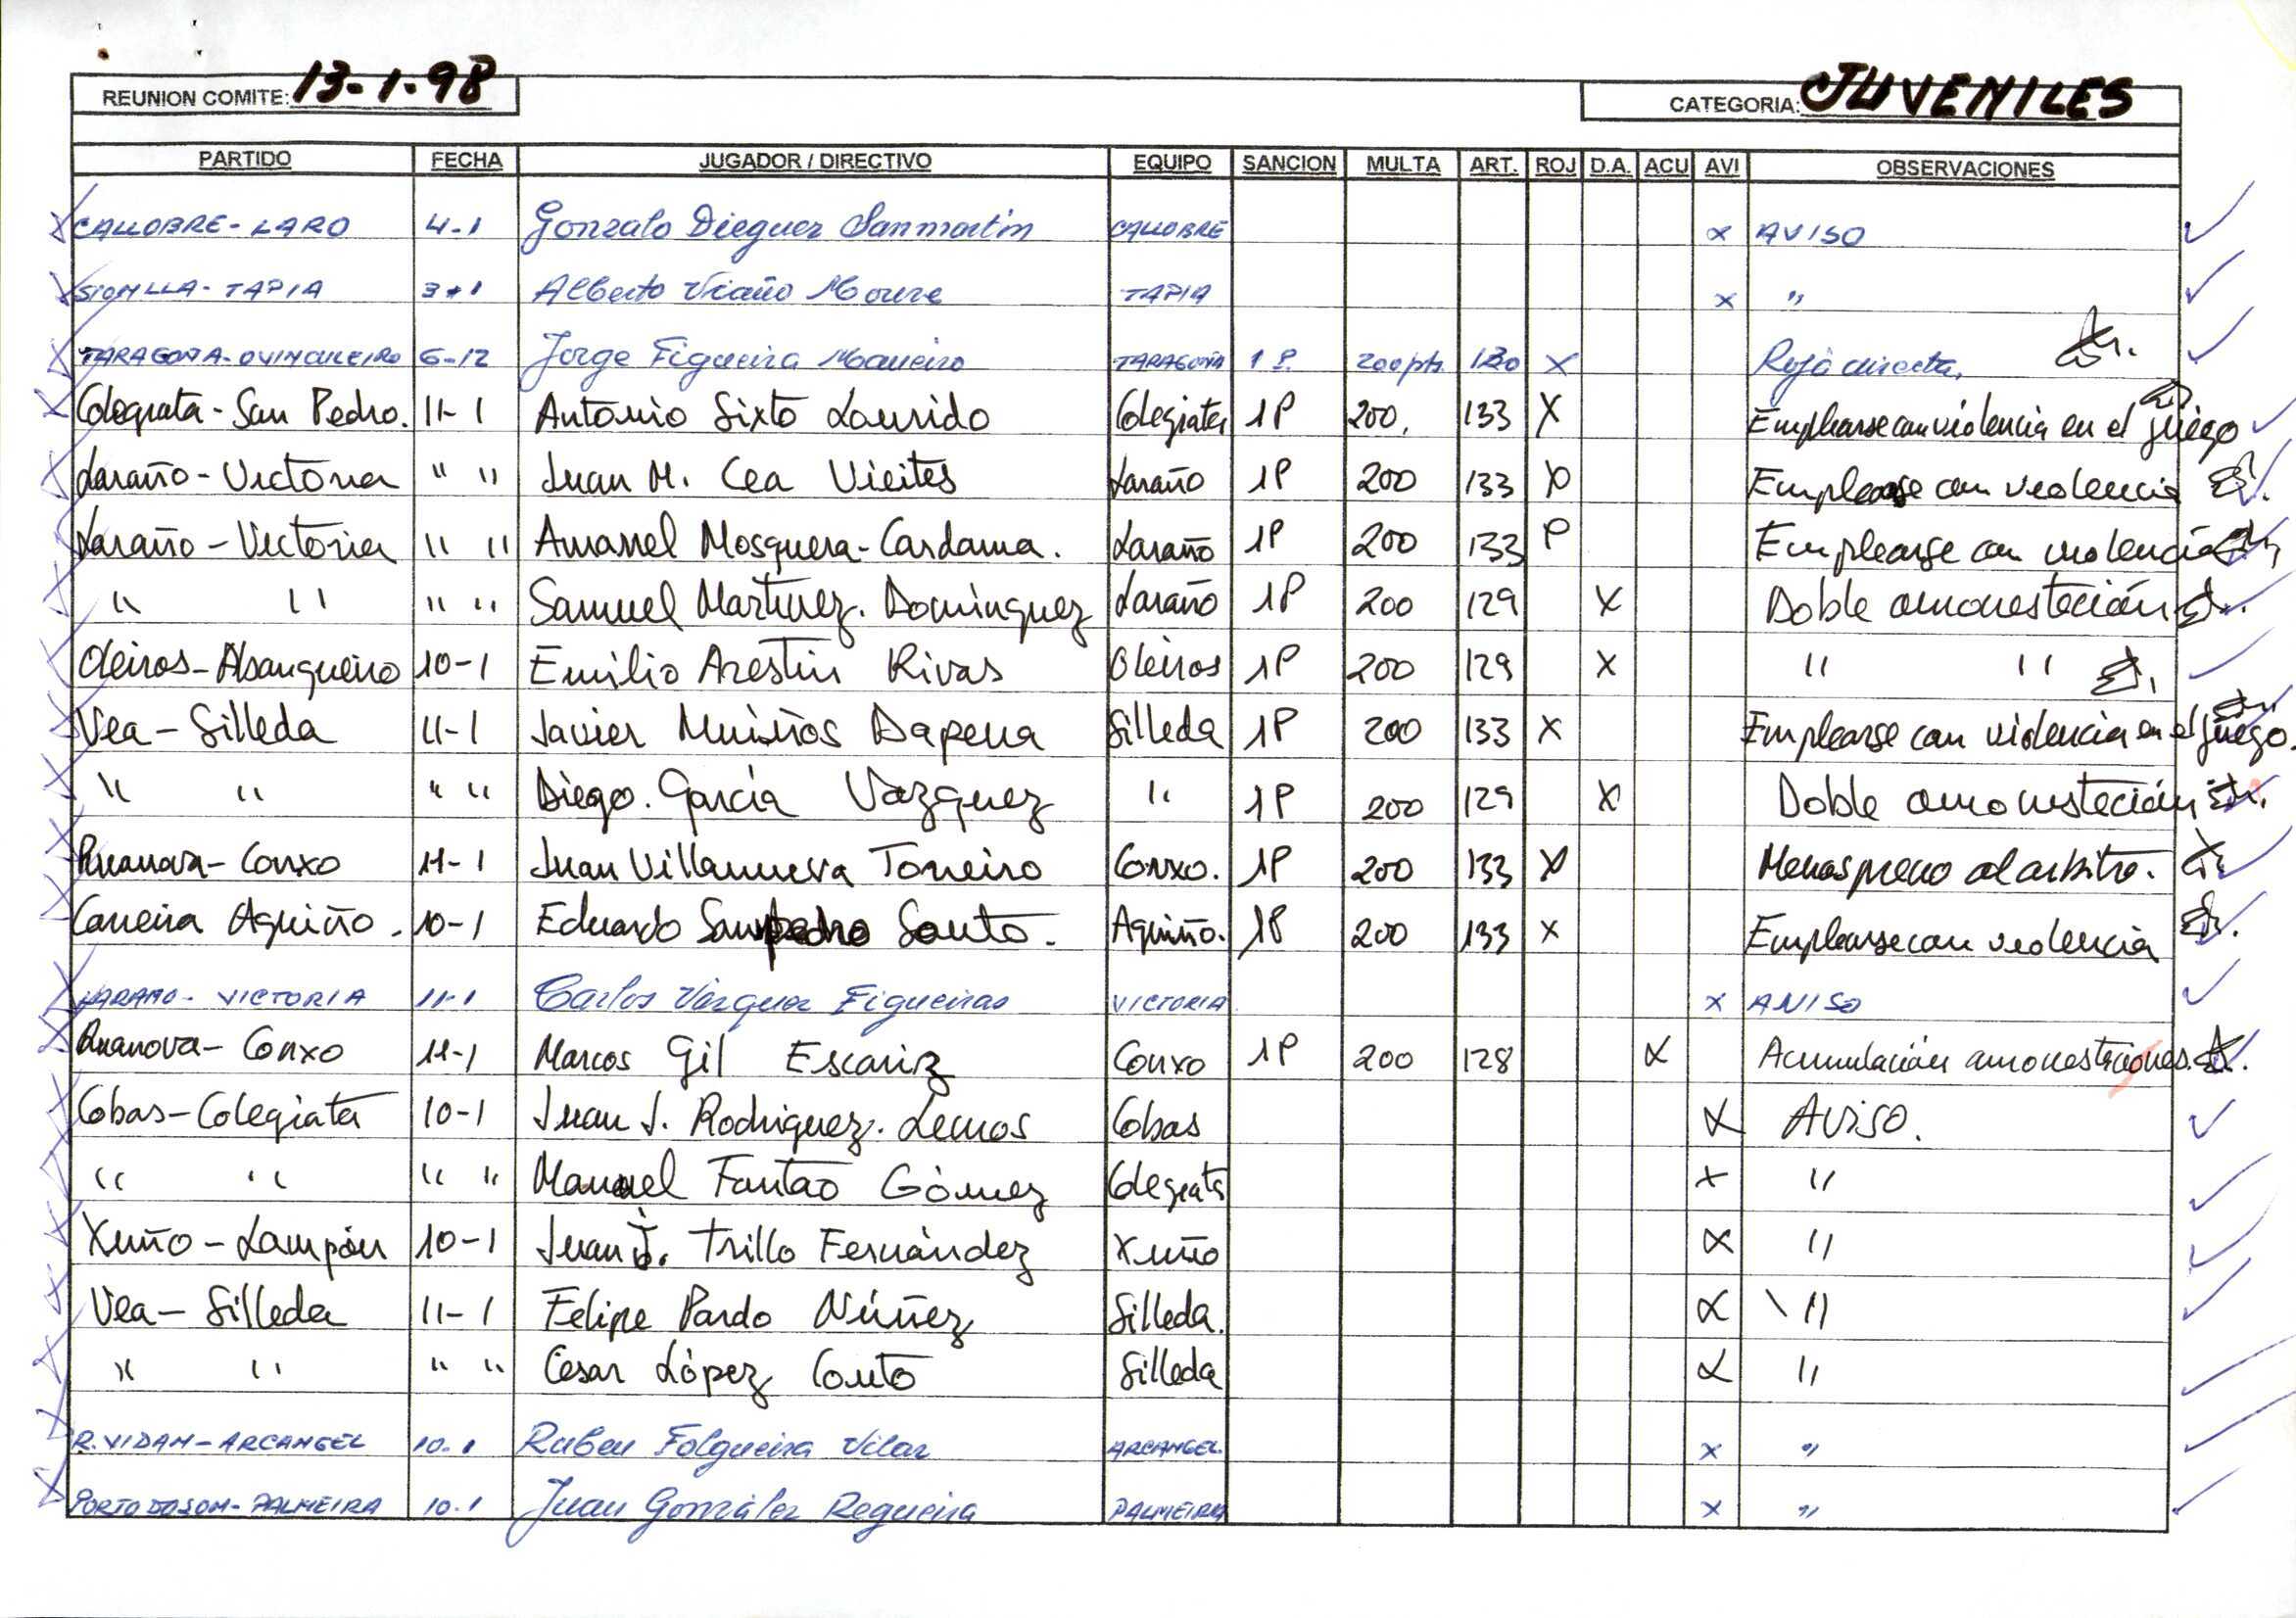 REUNION COMITE: 13-1-98 CATEGORIA: JUVENILES
PARTIDO FECHA JUGADOR / DIRECTIVO EQUIPO SANCION MULTA ART. ROJ D.A. ACU AVI OBSERVACIONES
CALLOBRE - LARO 4-1 Gonzalo Dieguez Sanmartín CALLOBRE x AVISO
SIONLLA - TAPIA 3-1 Alberto Viaño Moure TAPIA x "
TARAGOÑA - 6-12 Jorge Figueira TARAGOÑA 1 P. 200 pts. 130 X Roja directa.
Colegiata - San Pedro. 11-1 Antonio Sixto Lourido Colegiata 1P 200. 133 X Emplearse con violencia en el juego
Laraño - Victoria " " Juan M. Cea Vieites Laraño 1P 200 133 X Emplearse con violencia
Laraño - Victoria " " Mosquera - Cardama. Laraño 1P 200 133 Emplearse con violencia
" " " " Samuel Martinez. Dominguez Laraño 1P 200 129 X Doble amonestación
Oleiros - 10-1 Emilio Arestin Rivas Oleiros 1P 200 129 X " "
Vea - Silleda 11-1 Javier Muiños Dapena Silleda 1P 200 133 X Emplearse con violencia en el juego.
" " " " Diego. García Vazquez " 1P 200 129 X Doble amonestación
Ruanova - Conxo 11-1 Juan Villanueva Torreiro Conxo. 1P 200 133 X Menosprecio al arbitro.
Carreira Aguiño. 10-1 Eduardo Sampedro Souto. Aguiño. 1P 200 133 x Emplearse con violencia
LARAÑO - VICTORIA 11-1 Carlos Vázquez Figueiras VICTORIA x AVISO
Ruanova - Conxo 11-1 Marcos Gil Escariz Conxo 1P 200 128 X Acumulación amonestaciones.
Cobas - Colegiata 10-1 Juan J. Rodriguez. Lemos Cobas X Aviso.
" " " " Manuel Fontao Gómez Colegiata x "
Xuño - Lampón 10-1 Juan J. Trillo Fernández Xuño X "
Vea - Silleda 11-1 Felipe Pardo Núñez Silleda. X "
" " " " Cesar López Couto Silleda X "
R. VIDAN - ARCANGEL 10-1 Ruben Folgueira Vilar ARCANGEL x "
PORTO DO SON - PALMEIRA 10-1 Juan González Regueira PALMEIRA x "